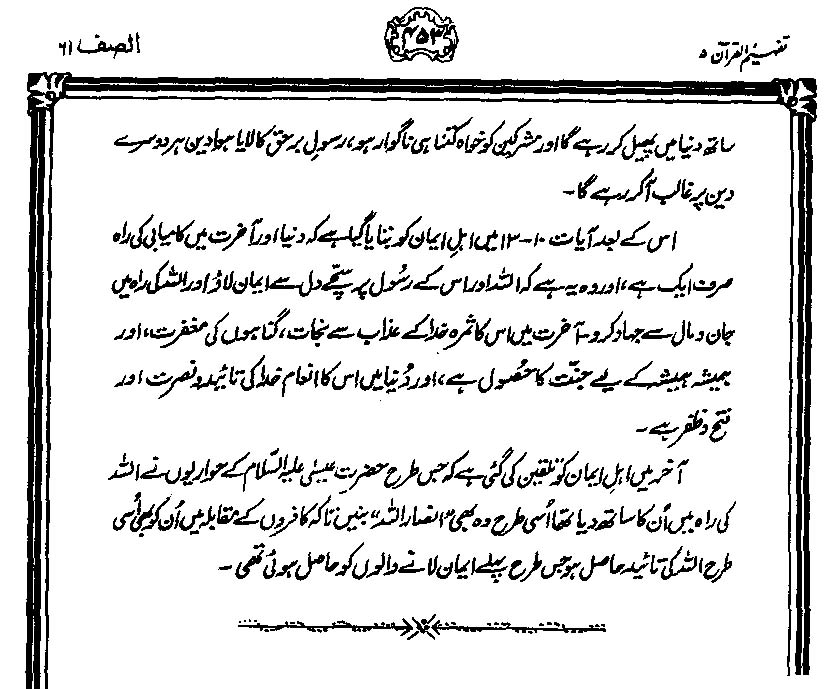 تفہیم القرآن ۵
۴۵۳
الصف ۶۱
ساتھ دنیا میں پھیل کر رہے گا اور مشرکین کو خواہ کتنا ہی ناگوار ہو، رسولِ برحق کا لایا ہوا دین ہر دوسرے
دین پر غالب آکر رہے گا۔
اس کے بعد آیات ۱۰-۱۳ میں اہلِ ایمان کو بتایا گیا ہے کہ دنیا اور آخرت میں کامیابی کی راہ
صرف ایک ہے، اور وہ یہ ہے کہ اللہ اور اس کے رسُول پر سچّے دل سے ایمان لاؤ اور اللہ کی راہ میں
جان و مال سے جہاد کرو۔ آخرت میں اس کا ثمرہ خدا کے عذاب سے نجات، گناہوں کی مغفرت، اور
ہمیشہ ہمیشہ کے لیے جنّت کا حصُول ہے، اور دُنیا میں اس کا انعام خدا کی تائید و نصرت اور
فتح و ظفر ہے۔
آخر میں اہلِ ایمان کو تلقین کی گئی ہے کہ جس طرح حضرت عیسیٰ علیہ السّلام کے حواریوں نے اللہ
کی راہ میں اُن کا ساتھ دیا تھا اُسی طرح وہ بھی "انصار اللہ" بنیں تاکہ کافروں کے مقابلہ میں اُن کو بھی اُسی
طرح اللہ کی تائید حاصل ہو جس طرح پہلے ایمان لانے والوں کو حاصل ہوئی تھی۔